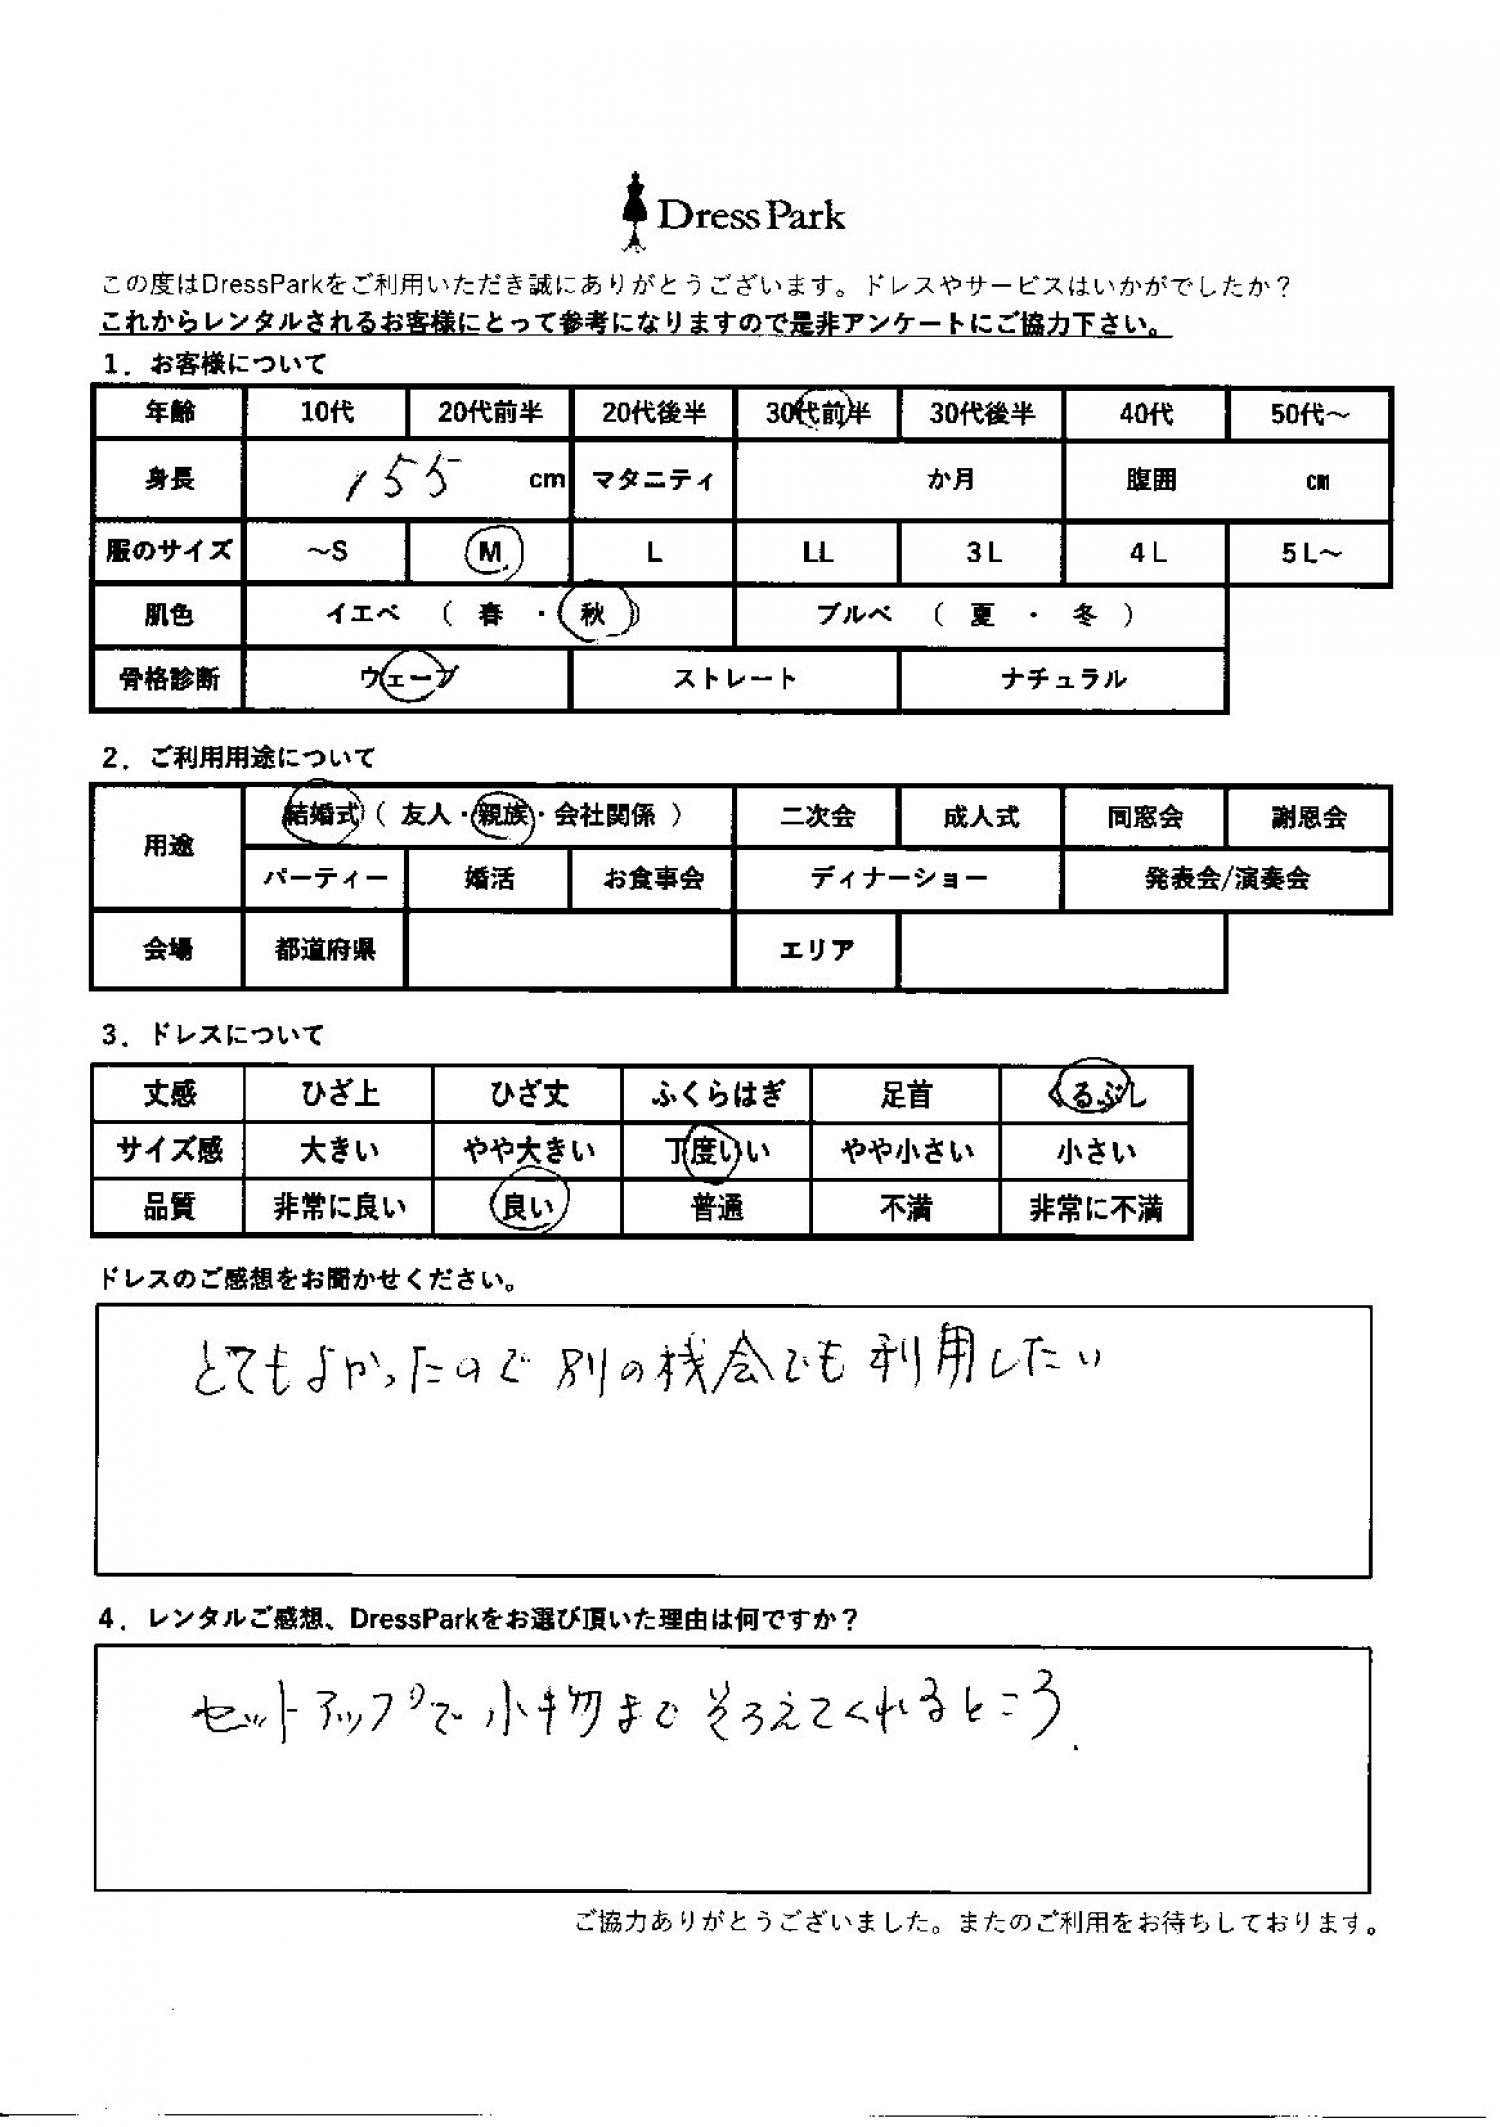 Dress Park
この度はDressParkをご利用いただき誠にありがとうございます。ドレスやサービスはいかがでしたか？
これからレンタルされるお客様にとって参考になりますので是非アンケートにご協力下さい。
1．お客様について
年齢 10代 20代前半 20代後半 30代前半 30代後半 40代 50代～
身長 155 cm マタニティ か月 腹囲 cm
服のサイズ ～S M L LL 3L 4L 5L～
肌色 イエベ （ 春 ・ 秋 ） ブルベ （ 夏 ・ 冬 ）
骨格診断 ウェーブ ストレート ナチュラル
2．ご利用用途について
用途 結婚式（ 友人・親族・会社関係 ） 二次会 成人式 同窓会 謝恩会
パーティー 婚活 お食事会 ディナーショー 発表会/演奏会
会場 都道府県 エリア
3．ドレスについて
丈感 ひざ上 ひざ丈 ふくらはぎ 足首 くるぶし
サイズ感 大きい やや大きい 丁度いい やや小さい 小さい
品質 非常に良い 良い 普通 不満 非常に不満
ドレスのご感想をお聞かせください。
とてもよかったので別の機会でも利用したい
4．レンタルご感想、DressParkをお選び頂いた理由は何ですか？
セットアップで小物までそろえてくれるところ.
ご協力ありがとうございました。またのご利用をお待ちしております。